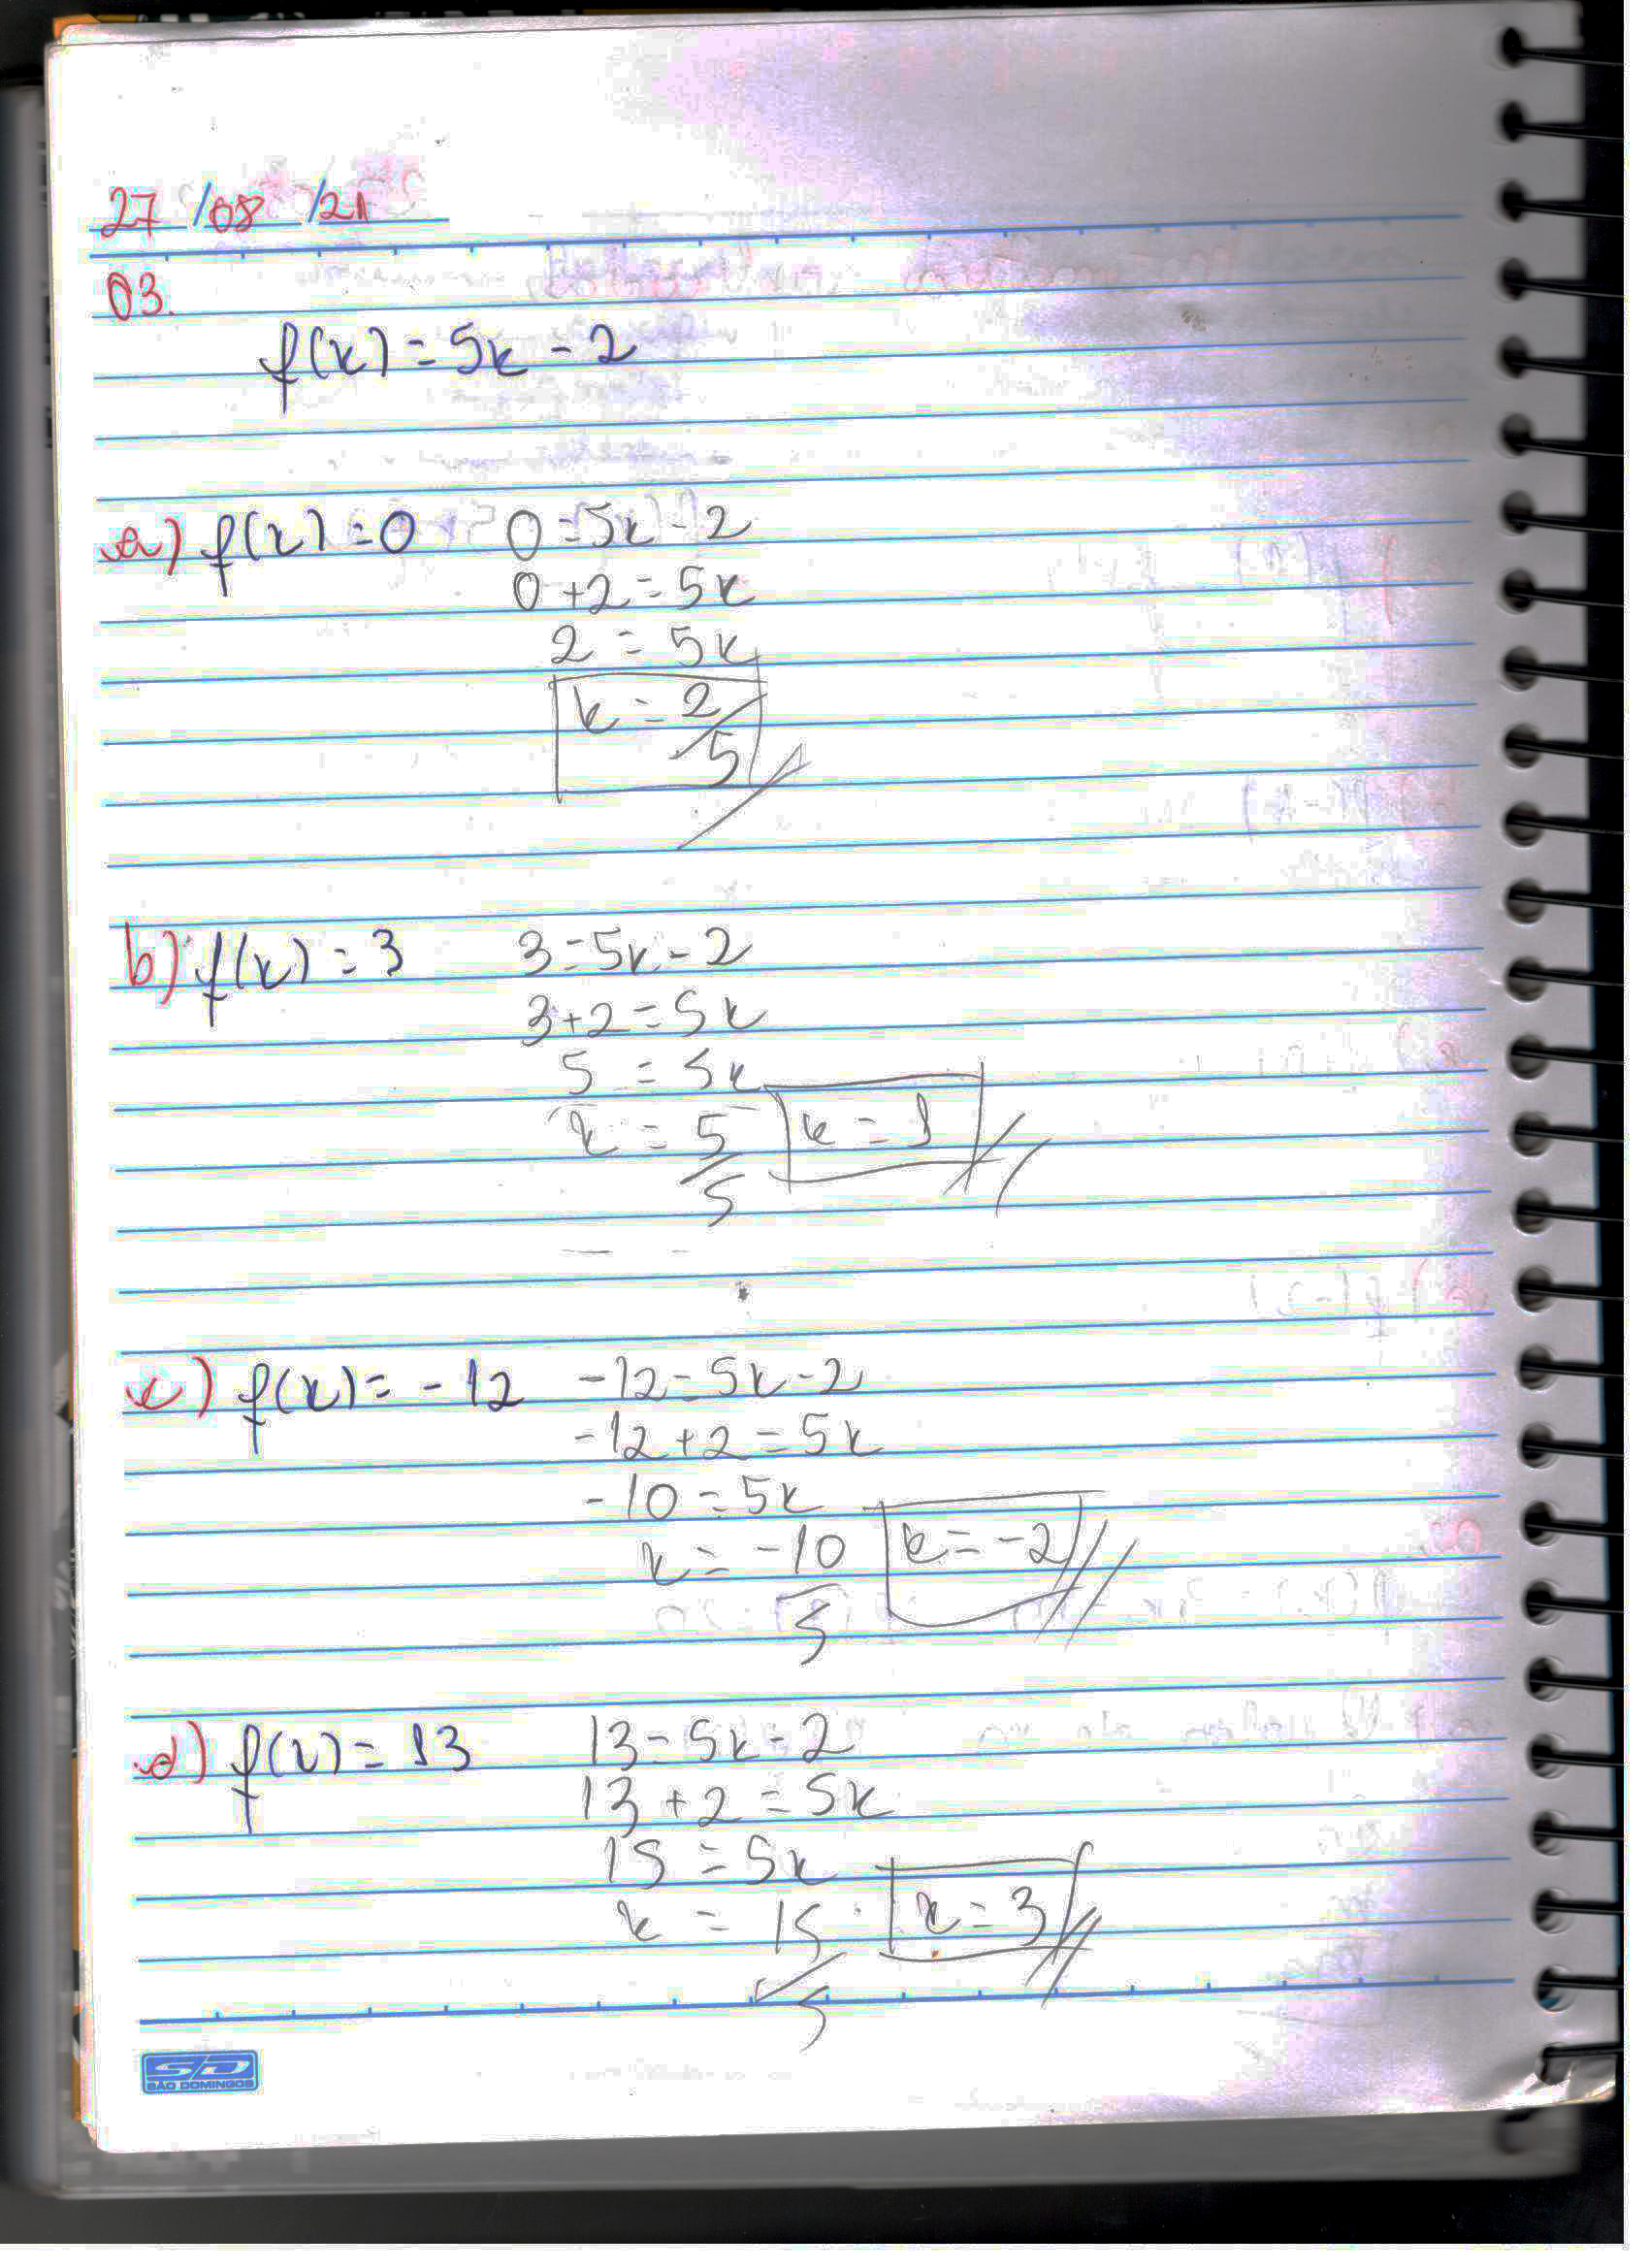 27/08/21
03.
f(x) = 5x - 2
a) f(x) = 0 0 = 5x - 2
0 + 2 = 5x
2 = 5x
x = 2/5
b) f(x) = 3 3 = 5x - 2
3 + 2 = 5x
5 = 5x
x = 5/5 x = 1
c) f(x) = -12 -12 = 5x - 2
-12 + 2 = 5x
-10 = 5x
x = -10/5 x = -2
d) f(x) = 13 13 = 5x - 2
13 + 2 = 5x
15 = 5x
x = 15/5 x = 3
SD
SÃO DOMINGOS